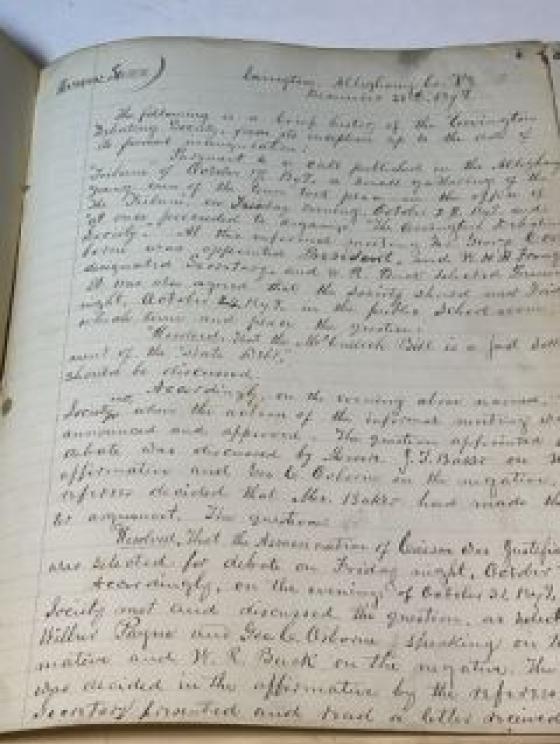 Covington, Alleghany Co. Va
December 1879
The following is a brief history of the Covington
Debating Society, from its inception up to the date of
its present
Pursuant to a call published in the Alleghany
Tribune of October 17 a small gathering of the
young men of the town took place in the office of
The Tribune, on Tuesday evening, October and
at once proceeded to organize The Covington Debating
Society. At this informal meeting Mr George C Os
borne was appointed President, and W. H. H.
designated Secretary, and W. R. Buck selected
It was also agreed that the society should meet Friday
night, October 24, in the public School room
which time and place the question:
"Resolved, That the McCulloch Bill is a just settle
ment of the State Debt,"
should be discussed.
Accordingly, on the evening above named,
Society met when the action of the informal meeting was
announced and approved. The question appointed
debate was discussed by Messrs J. T. Baker on
affirmative and Geo C. Osborne on the negative.
referees decided that Mr. Baker had made the
ter argument. The question
"Resolved, That the Assassination of Caesar was Justifia
was selected for debate on Friday night, October
Accordingly, on the evening of October 31,
Society met and discussed the question, as select
Wilbur Payne and Geo C. Osborne speaking on
mative and W. R. Buck on the negative. The
was decided in the affirmative by the referees
Secretary presented and read a letter received